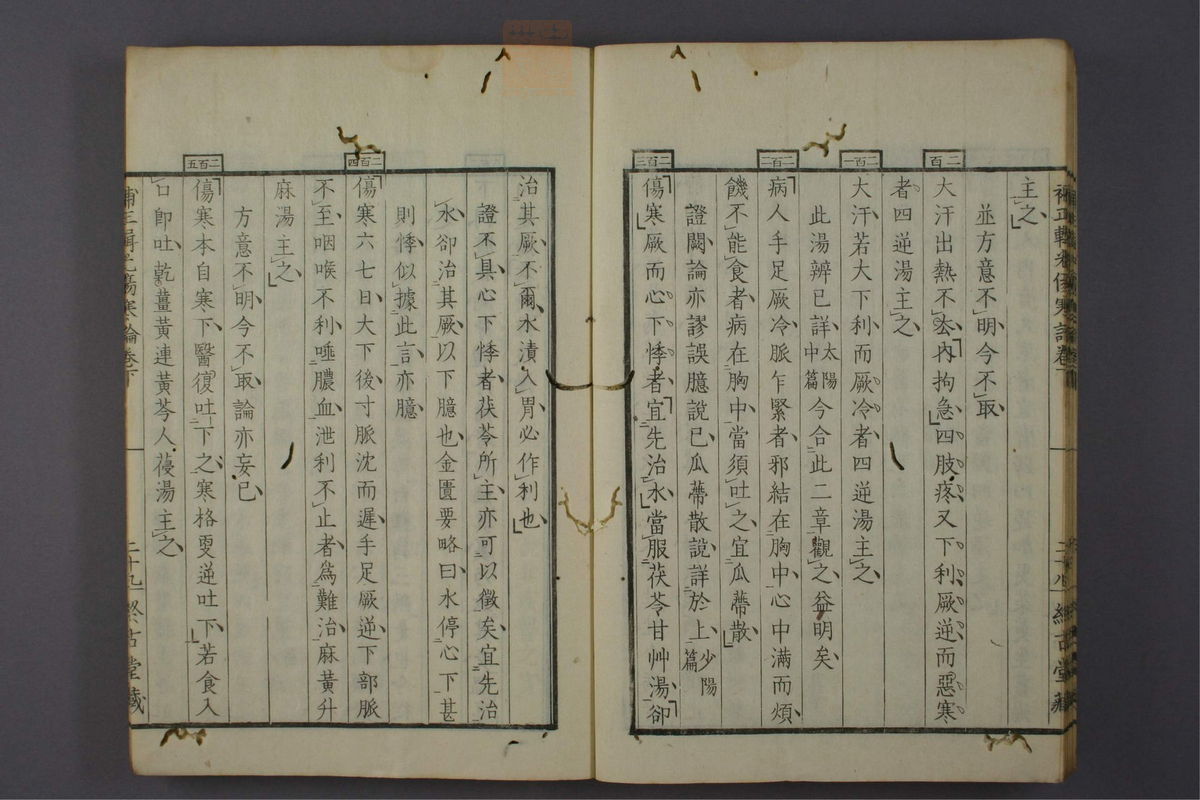 主之
並方意不明今不取
二百
大汗出熱不去內拘急四肢疼又下利厥逆而惡寒
者四逆湯主之
二百一
大汗若大下利而厥冷者四逆湯主之
此湯辨已詳太陽中篇今合此二章觀之益明矣
二百二
病人手足厥冷脈乍緊者邪結在胸中心中滿而煩
饑不能食者病在胸中當須吐之宜瓜蔕散
證闕論亦謬誤臆說已瓜蔕散說詳於上少陽篇
二百三
傷寒厥而心下悸者宜先治水當服茯苓甘艸湯卻
治其厥不爾水漬入胃必作利也
證不具心下悸者茯苓所主亦可以徵矣宜先治
水卻治其厥以下臆也金匱要略曰水停心下甚
則悸似據此言亦臆
二百四
傷寒六七日大下後寸脈沈而遲手足厥逆下部脈
不至咽喉不利唾膿血泄利不止者為難治麻黃升
麻湯主之
方意不明今不取論亦妄已
二百五
傷寒本自寒下醫復吐下之寒格更逆吐下若食入
口即吐乾薑黃連黃芩人葠湯主之
傷寒論卷下
二十九
終古堂藏